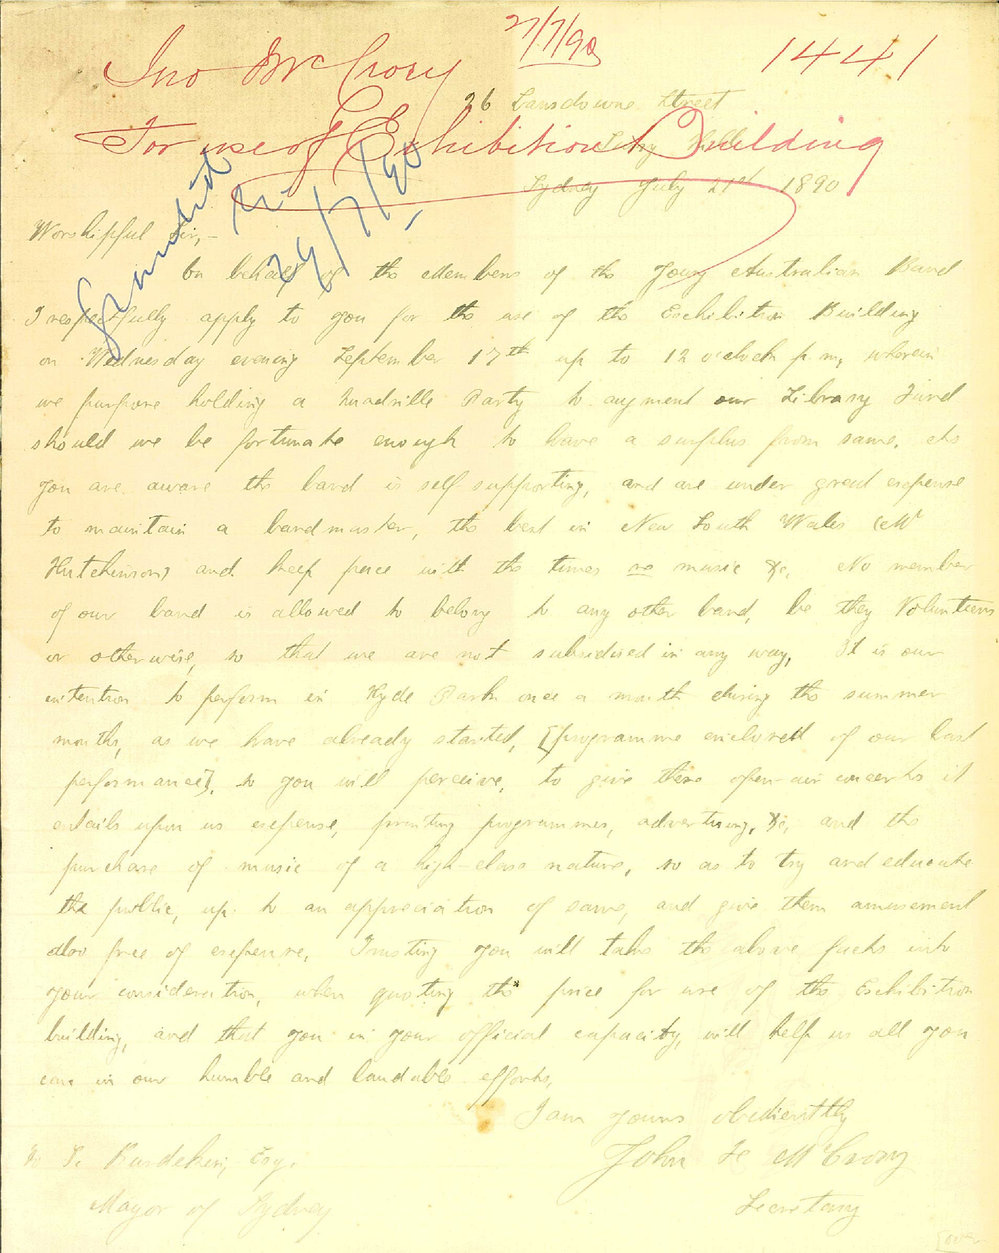 27/7/90
1441
Jno McCrory
26 Lansdowne Street
For use of Exhibition Building
Surry Hills
Sydney July 21st 1890
Granted
29/7/90
Worshipful Sir,-
On behalf of the Members of the Young Australian Band
I respectfully apply to you for the use of the Exhibition Building
on Wednesday evening September 17th up to 12 o'clock p m, wherein
we purpose holding a Quadrille Party to augment our Library Fund
should we be fortunate enough to have a surplus from same. As
you are aware the band is self supporting, and are under great expense
to maintain a bandmaster, the best in New South Wales (Mr
Hutchinson) and keep pace with the times re music &c. No member
of our band is allowed to belong to any other band, be they Volunteers
or otherwise, so that we are not subsidised in any way. It is our
intention to perform in Hyde Park once a month during the summer
months, as we have already started, [programme enclosed of our last
performance], so you will perceive, to give these open-air concerts it
entails upon us expense, printing programmes, advertising, &c, and the
purchase of music of a high-class nature, so as to try and educate
the public, up to an appreciation of same, and give them amusement
also free of expense. Trusting you will take the above facts into
your consideration, when quoting the price for use of the Exhibition
building, and that you in your official capacity, will help us all you
can in our humble and laudable efforts.
I am yours obediently
John F McCrory
Secretary
S. Burdekin, Esq.
Mayor of Sydney
[over